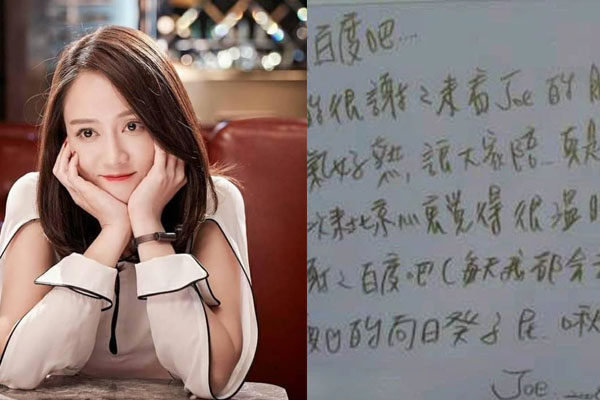 百度吧...
很謝々来看Joe的
氣好熱,讓大家陪..真是
次来北京心裏覺得很溫
謝々百度吧(每天我都会
的向日葵子民 啾
Joe